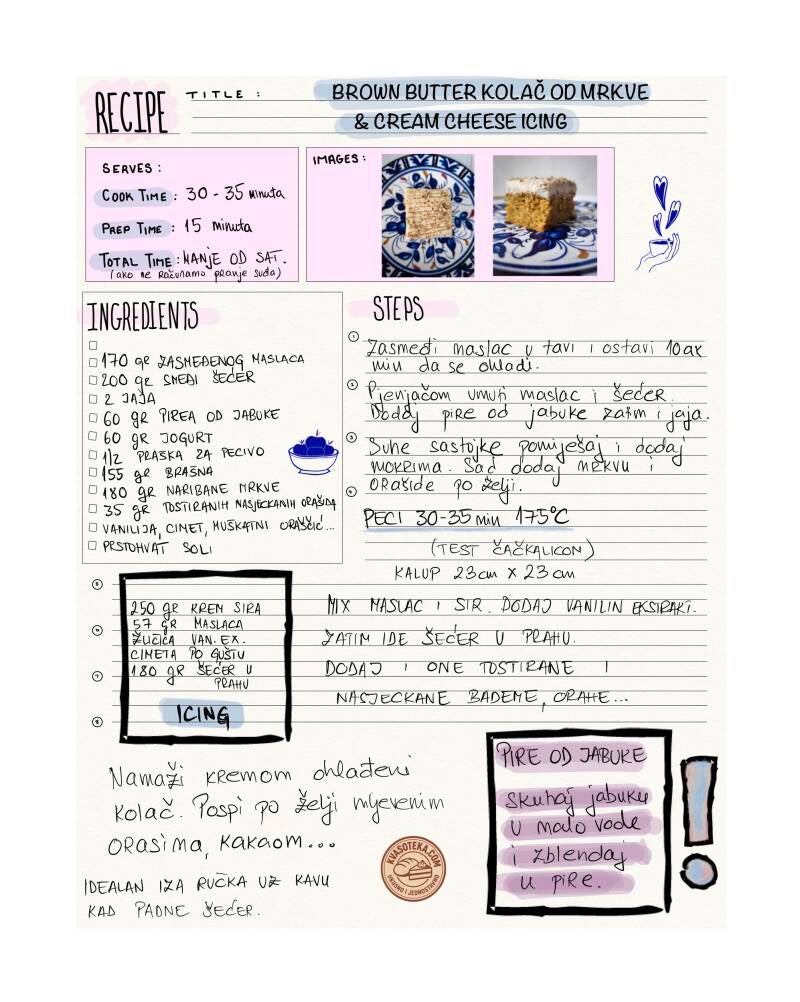 RECIPE
TITLE :
BROWN BUTTER KOLAČ OD MRKVE
& CREAM CHEESE ICING
SERVES :
COOK TIME : 30 - 35 minuta
PREP TIME : 15 minuta
TOTAL TIME : MANJE OD SAT.
(ako ne računamo pranje suđa)
IMAGES :
INGREDIENTS
170 gr ZASMEĐENOG MASLACA
200 gr SMEĐI ŠEĆER
2 JAJA
60 gr PIREA OD JABUKE
60 gr JOGURT
1/2 PRAŠKA ZA PECIVO
155 gr BRAŠNA
180 gr NARIBANE MRKVE
35 gr TOSTIRANIH NASJECKANIH ORAŠIDA
VANILIJA, CIMET, MUŠKATNI ORAŠČIĆ...
PRSTOHVAT SOLI
STEPS
1 Zasmeđi maslac u tavi i ostavi 10ak
min da se ohladi.
2 Pjenjačom umuti maslac i šećer.
Dodaj pire od jabuke zatim i jaja.
3 Suhe sastojke pomiješaj i dodaj
mokrima. Sad dodaj mrkvu i
4 orašide po želji.
PECI 30-35 min 175°C
(TEST ČAČKALICOM)
KALUP 23 cm X 23 cm
5
6
7
8
250 gr KREM SIRA
57 gr MASLACA
ŽLIČICA VAN. EX.
CIMETA PO GUŠTU
180 gr ŠEĆER U
PRAHU
ICING
MIX MASLAC I SIR. DODAJ VANILIN EKSTRAKT.
ZATIM IDE ŠEĆER U PRAHU.
DODAJ I ONE TOSTIRANE I
NASJECKANE BADEME, ORAHE...
Namaži kremom ohlađeni
kolač. Pospi po želji mljevenim
orasima, kakaom...
IDEALAN IZA RUČKA UZ KAVU
KAD PADNE ŠEĆER.
KVASOTEKA.COM
UKUSNO I JEDNOSTAVNO
PIRE OD JABUKE
skuhaj jabuku
u malo vode
i zblendaj
u pire.
!